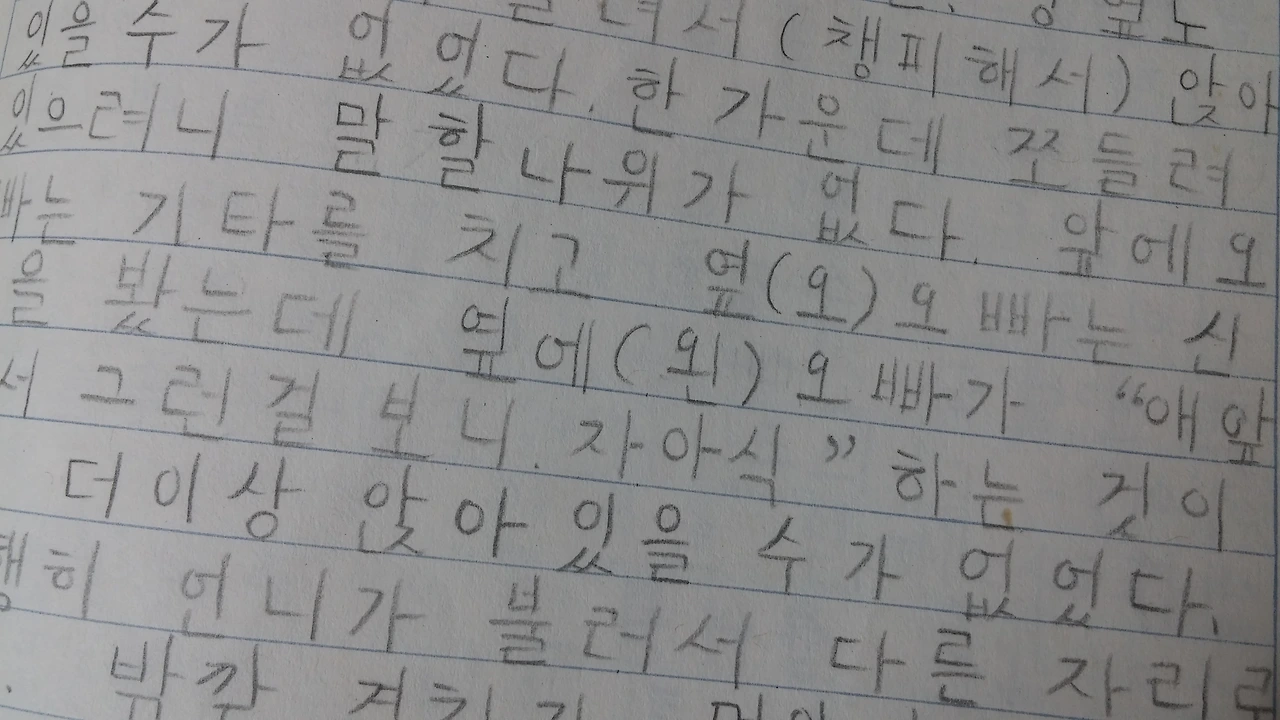 (챙피해서) 앉아
있을 수가 없었다. 한 가운데 쪼들려
있으려니 말 할 나위가 없다. 앞에 오
빠는 기타를 치고 옆(오) 오빠는 신
을 봤는데 옆에(왼) 오빠가 “애앞
서 그런걸 보니. 자아식” 하는 것이
더 이상 앉아 있을 수가 없었다.
행히 언니가 불러서 다른 자리로